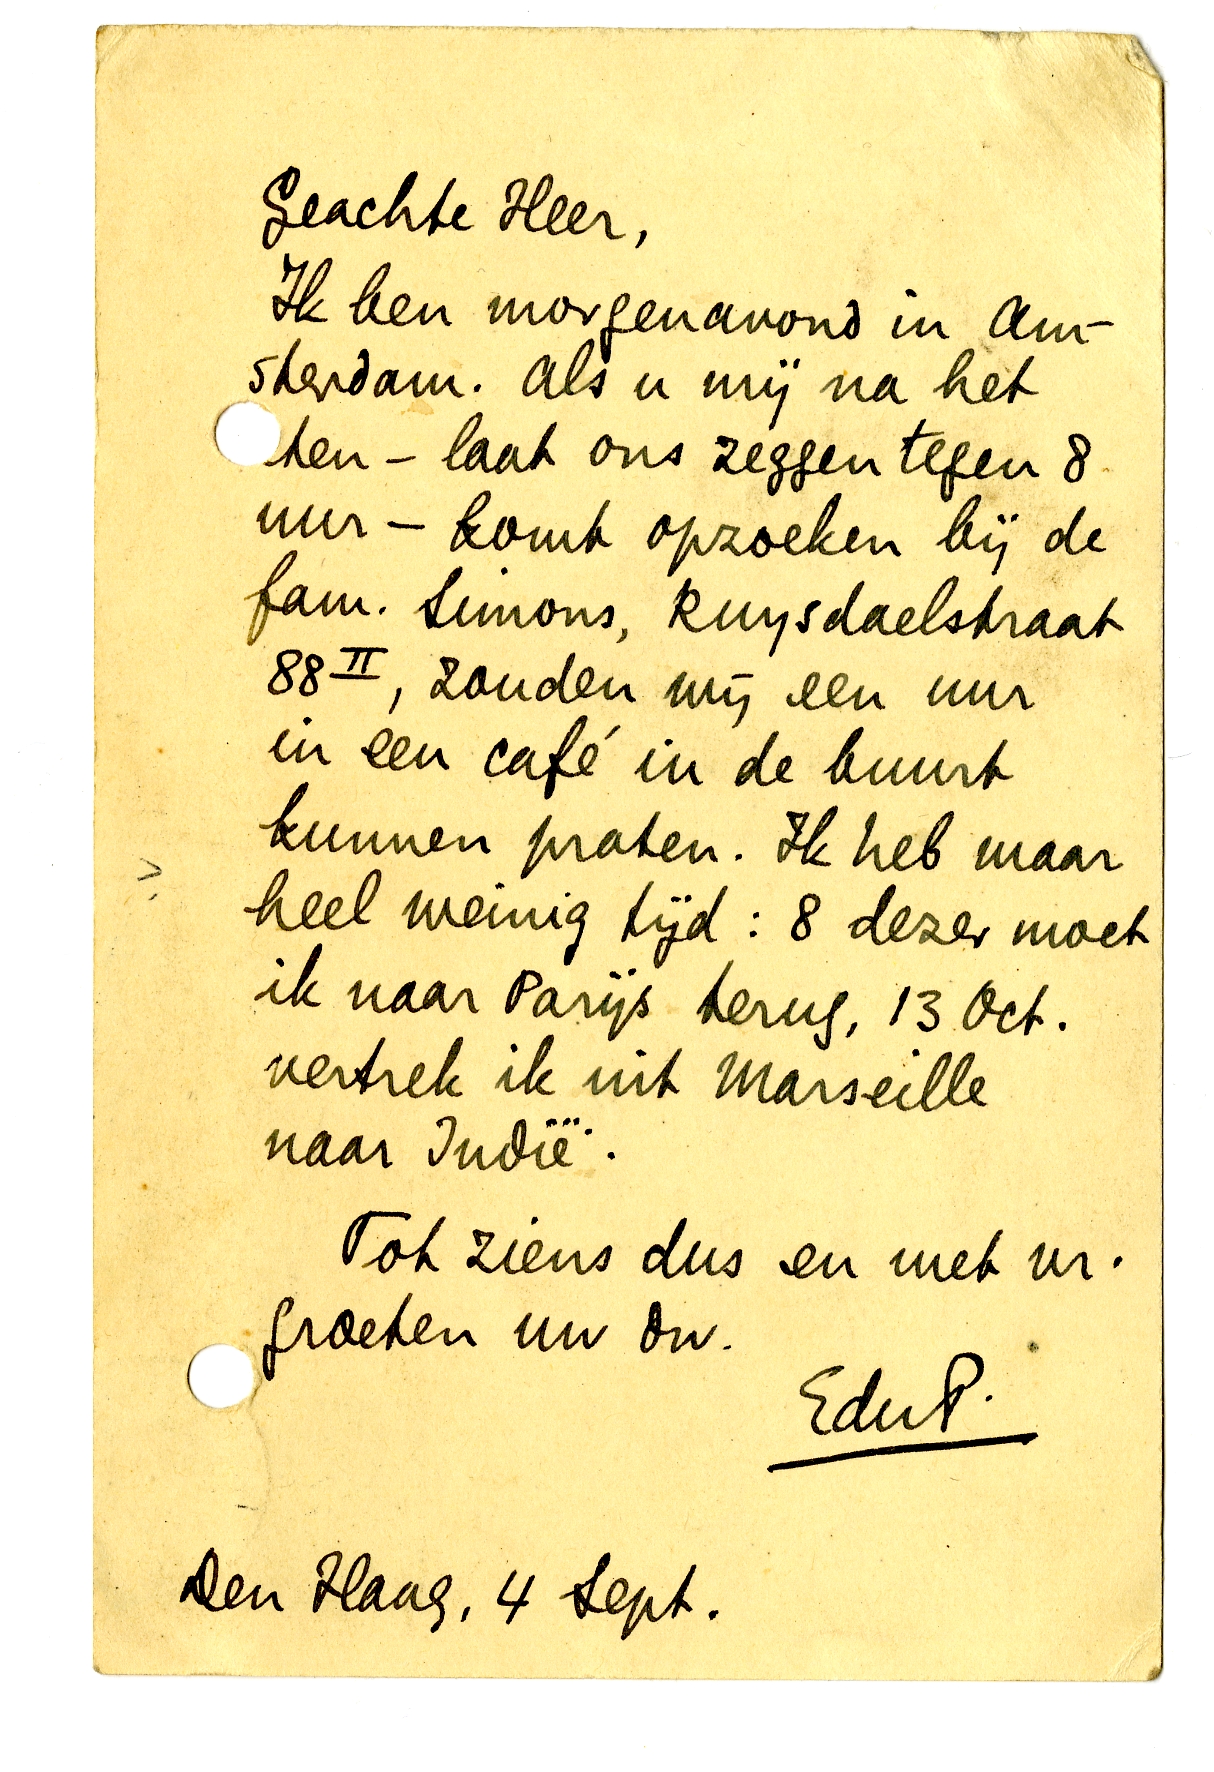 Geachte Heer,
Ik ben morgenavond in Am-
sterdam. Als u mij na het
ten – laat ons zeggen tegen 8
uur – komt opzoeken bij de
fam. Simons, Ruysdaelstraat
88 II, zouden wij een uur
in een café in de buurt
kunnen praten. Ik heb maar
heel weinig tijd : 8 dezer moet
ik naar Parijs terug, 13 Oct.
vertrek ik uit Marseille
naar Indië.
Tot ziens dus en met vr.
groeten uw dw.
EduP.
Den Haag, 4 Sept.